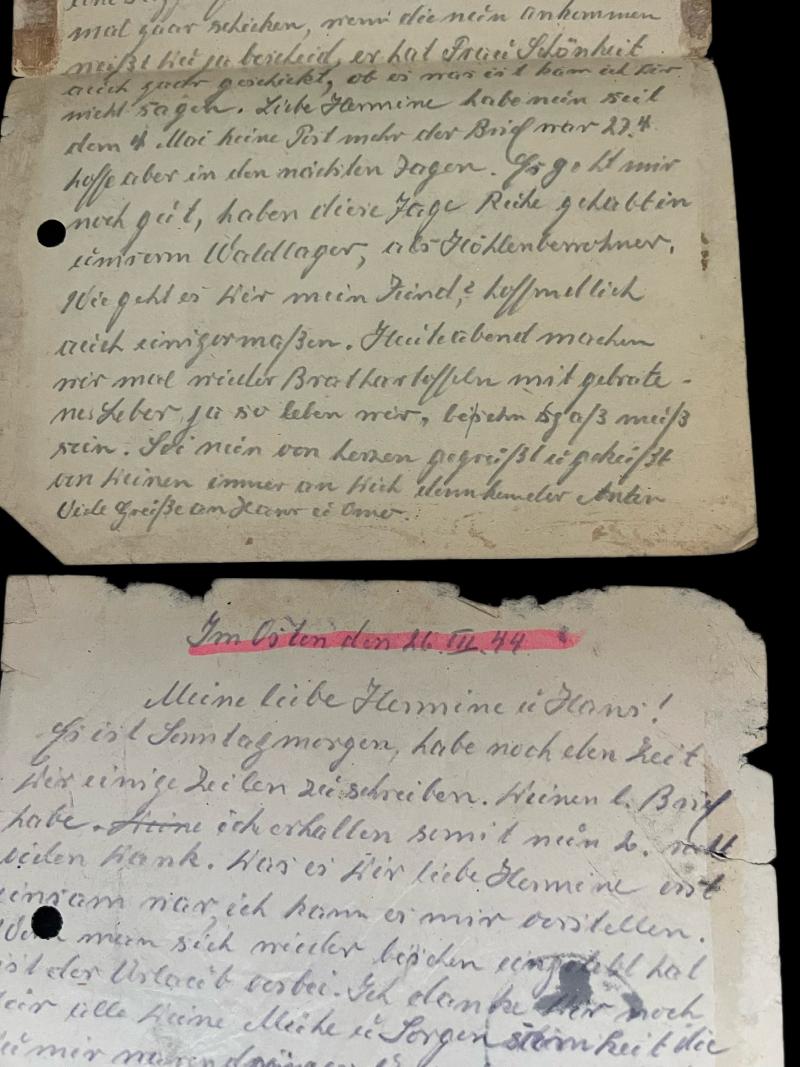 mal gaar schicken, wenn die nun ankommen
weißt du ja bescheid, er hat Frau Schönheit
auch gaar geschickt, ob es was ist kam ich dir
nicht sagen. Liebe Hermine habe nun seit
dem 4 Mai keine Post mehr der Brief war 27.4.
hoffe aber in den nächsten Tagen. Es geht mir
noch gut, haben diese Tage Ruhe gehabt in
unserm Waldlager, als Höhlenbewohner,
Wie geht es dir mein Kind,? hoffendlich
auch einigermaßen. Heute abend machen
wir mal wieder Bratkartoffeln mit gebrate-
nes Leber, ja so leben wir, bischn Spaß muß
sein. Sei nun von herzen gegrüßt u geküßt
von deinen immer an dich denkender Anton
Viele Grüße an Hans u Oma.
Im Osten den 26. III. 44
Meine liebe Hermine u Hans!
Es ist Sonntagmorgen, habe noch den Zeit
dir einige Zeilen zu schreiben. Deinen l. Brief
habe ich erhalten somit nun
vielen Dank. Das es dir liebe Hermine erst
einsam war, ich kann es mir vorstellen.
Wenn man sich wieder bischen eingelebt hat
ist der Urlaub vorbei. Ich danke dir noch
für alle deine Mühe u Sorgen die
du mir